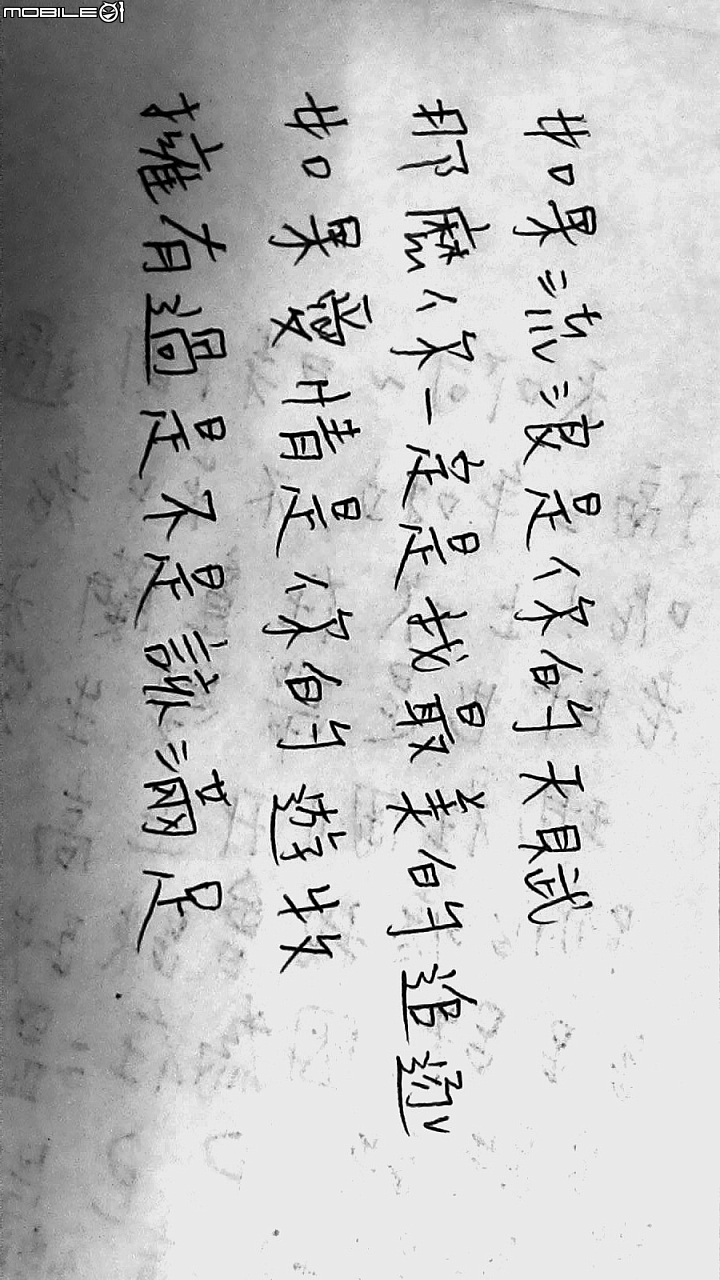 MOBILE01
如果流浪是你的天賦
那麼你一定是我最美的追逐
如果愛情是你的遊牧
擁有過是不是該滿足